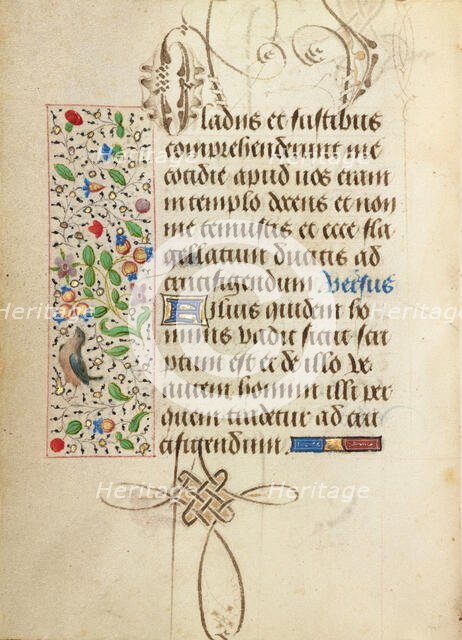 Gladiis et fustibus
comprehenderunt me
cotidie apud vos eram
in templo docens et non
me tenuistis et ecce fla
gellatum ducitis ad
crucifigendum Versus
Filius quidem ho
minis vadit sicut scri
ptum est et de illo ve
autem homini illi per
quem tradetur ad cru
cifigendum.
Heritage Heritage Heritage
Heritage Heritage Heritage